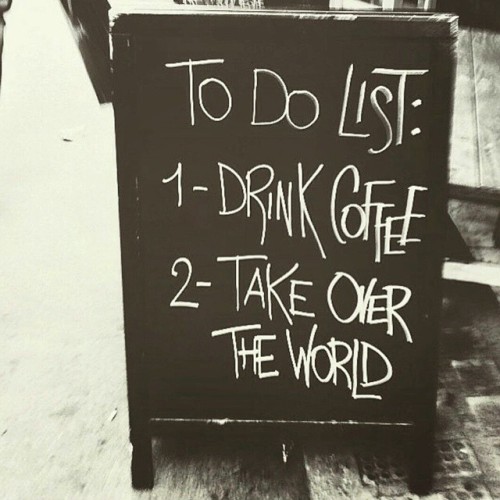 TO DO LIST:
1- DRINK COFFEE
2- TAKE OVER
THE WORLD